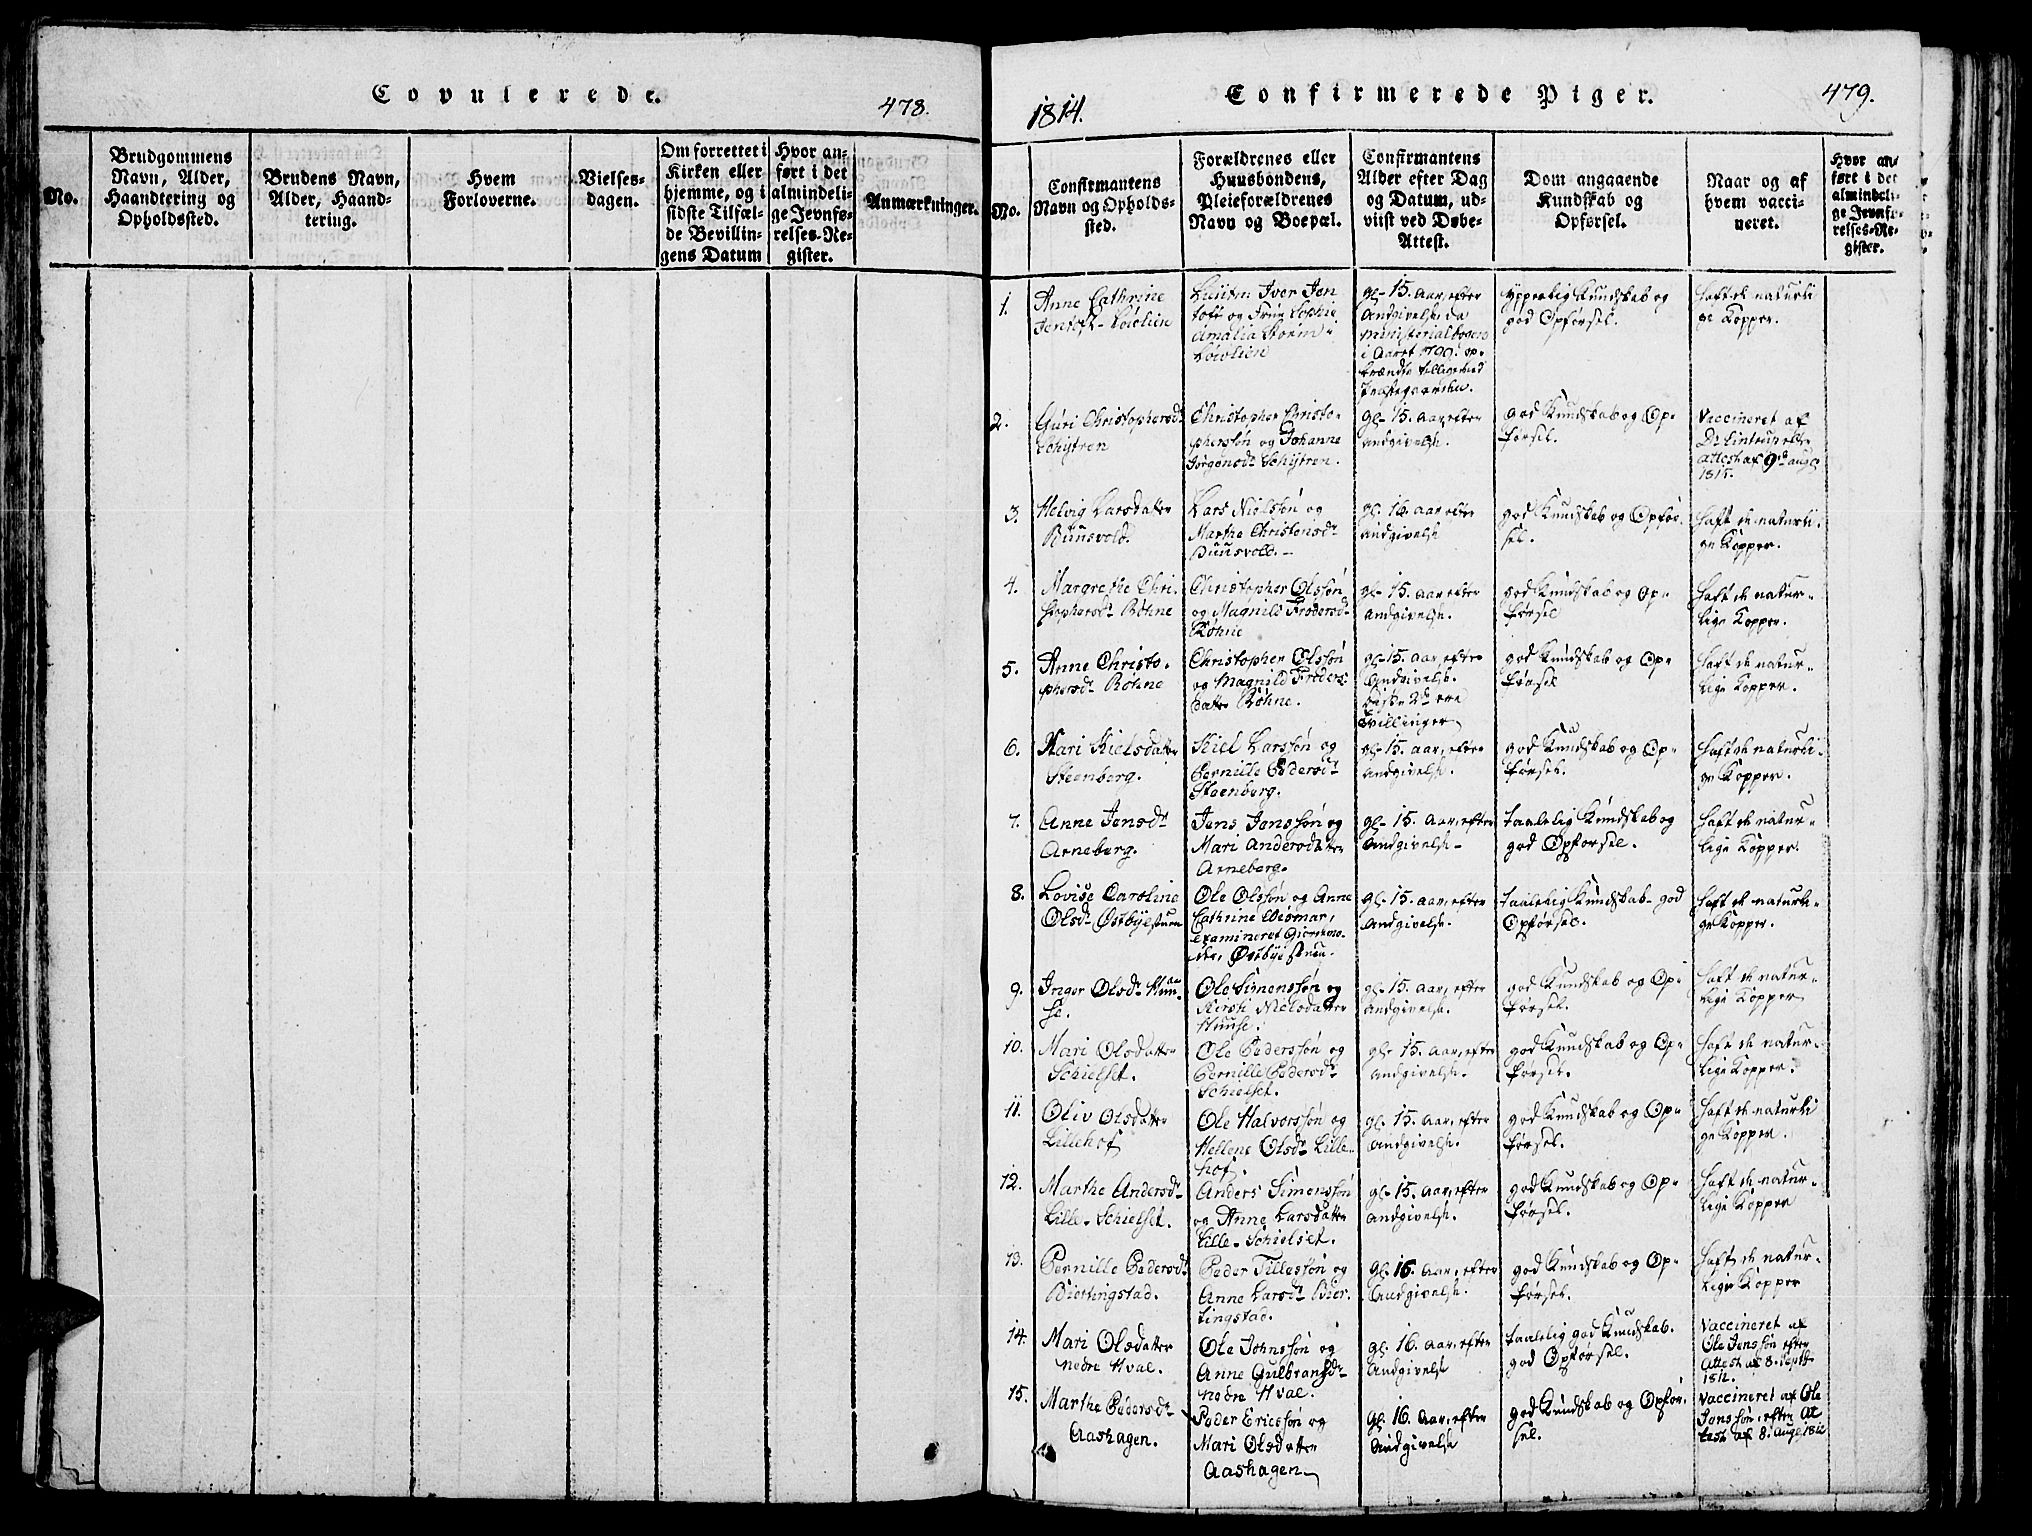 Copulerede.
478.
No.
Brudgommens
Navn, Alder,
Haandtering og
Opholdssted.
Brudens Navn,
Alder, Haand-
tering.
Hvem
Forloverne.
Vielses-
dagen.
Om forrettet i
Kirken eller
hjemme, og i
sidste Tilfæl-
de Bevillin-
gens Datum
Hvor an-
ført i det
almindeli-
ge Jevnfø-
relses-Re-
gister.
Anmærkninger.
1814.
Confirmerede Piger.
479.
No.
Confirmantens
Navn og Opholds-
sted.
Forældrenes eller
Huusbondens,
Pleieforældrenes
Navn og Boepæl.
Confirmantens
Alder efter Dag
og Datum, ud-
viist ved Døbe-
Attest.
Dom angaaende
Kundskab og
Opførsel.
Naar og af
hvem vacci-
neret.
Hvor an-
ført i det
almindeli-
ge Jevnfø-
relses-Re-
gister.
1.
Anne Cathrine
Jentoft
Iver Jen
toft og Frue Sophie
Amalia
gl. 15. Aar, efter
Andgivelse, da
Ministerialbogen
i Aaret 1799. op-
brændte tilligemed
Præstegaarden.
ypperlig Kundskab og
god Opførsel.
haft de naturli
ge Kopper.
2.
Guri Christophersdr
Schÿtren
Christopher Christo-
phersøn og Johanne
Jørgensdr Schÿtren.
gl. 15. Aar, efter
Andgivelse.
god Kundskab og Op-
førsel.
Vaccineret af
Attest af 9de aug.
3.
Helvig Larsdatter
Bunsvold.
Lars Nielsøn og
Marthe Christensdr
Bunsvold.
gl. 16. Aar, efter
Andgivelse
god Kundskab og Opfør-
sel.
haft de naturli-
ge Kopper.
4.
Margrethe Chri-
stophersdr Røhne
Christopher Olssøn
og Magnild Frodersdr
Røhne
gl. 15. Aar, efter
Andgivelse.
god Kundskab og Op-
førsel
haft de natur-
lige Kopper.
5.
Anne Christo-
phersdr Røhne
Christopher Olssøn
og Magnild Froders-
datter Røhne.
gl. 15. Aar, efter
Andgivelse.
disse 2de ere
Tvillinger
god Kundskab og Op-
førsel
haft de natur-
lige Kopper.
6.
Kari Kielsdatter
Steenberg.
Kiel Larssøn og
Pernille Pedersdr
Steenberg.
gl. 15. Aar, efter
Andgivelse.
god Kundskab og Op-
førsel.
haft de naturli-
ge Kopper.
7.
Anne Jensdr
Arneberg.
Jens Jenssøn og
Mari Andersdatter
Arneberg.
gl. 15. Aar, efter
Andgivelse
taalelig Kundskab og
god Opførsel.
haft de natur-
lige Kopper.
8.
Lovise Caroline
Olsdr Østbÿestuen
Ole Olssøn og Anne
Cathrine Weimar,
examineret Giordemo-
der, Østbÿestuen.
gl. 15. Aar, efter
Andgivelse.
taalelig Kundskab god
Opførsel.
haft de naturli-
ge Kopper.
9.
Inger Olsdr Huu-
se.
Ole Simenssøn og
Kirsti Nielsdatter
Huuse.
gl. 15. Aar, efter
Andgivelse.
god Kundskab og Op-
førsel.
haft de natur-
lige Kopper
10.
Mari Olsdatter
Schielset.
Ole Pederssøn og
Pernille Pedersdr
Schielset.
gl. 15. Aar, efter
Andgivelse.
god Kundskab og Op-
førsel.
haft de natur-
lige Kopper.
11.
Oliv Olsdatter
Lillehof
Ole Halvorssøn og
Hellene Olsdr Lille-
hof.
gl. 15. Aar, efter
Andgivelse.
god Kundskab og Op-
førsel.
haft de naturli
ge Kopper.
12.
Marthe Andersdr
Lille-Schielset.
Anders Simenssøn
og Anne Larsdatter
Lille-Schielset.
gl. 15. Aar, efter
Andgivelse.
god Kundskab og Op-
førsel.
haft de natur-
lige Kopper
13.
Pernille Pedersdr
Biertingstad.
Peder Tillessøn og
Anne Larsdr Bier-
tingstad.
gl. 16. Aar, efter
Andgivelse.
god Kundskab og Op-
førsel.
haft de natur-
lige Kopper
14.
Mari Olsdatter
nedre Hval.
Ole Johnssøn og
Anne Gulbransdr
nedre Hval.
gl. 16. Aar, efter
Andgivelse
taalelig god Kundskab.
god Opførsel.
Vaccineret af
Ole Jenssøn efter
Attest af 8. Septr
1811.
15.
Marthe Pedersdr
Aashagen.
Peder Ericssøn og
Mari Olsdatter
Aashagen
gl. 16. Aar, efter
Andgivelse
god Kundskab og Opfør-
sel.
Vaccineret af Ole
Jonssøn, efter At
test af 8. Aug. 1812